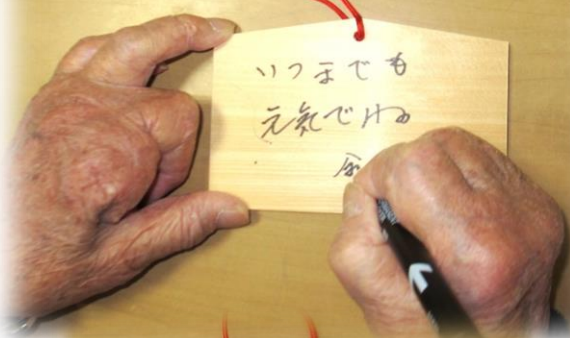 いつまでも
元気でね